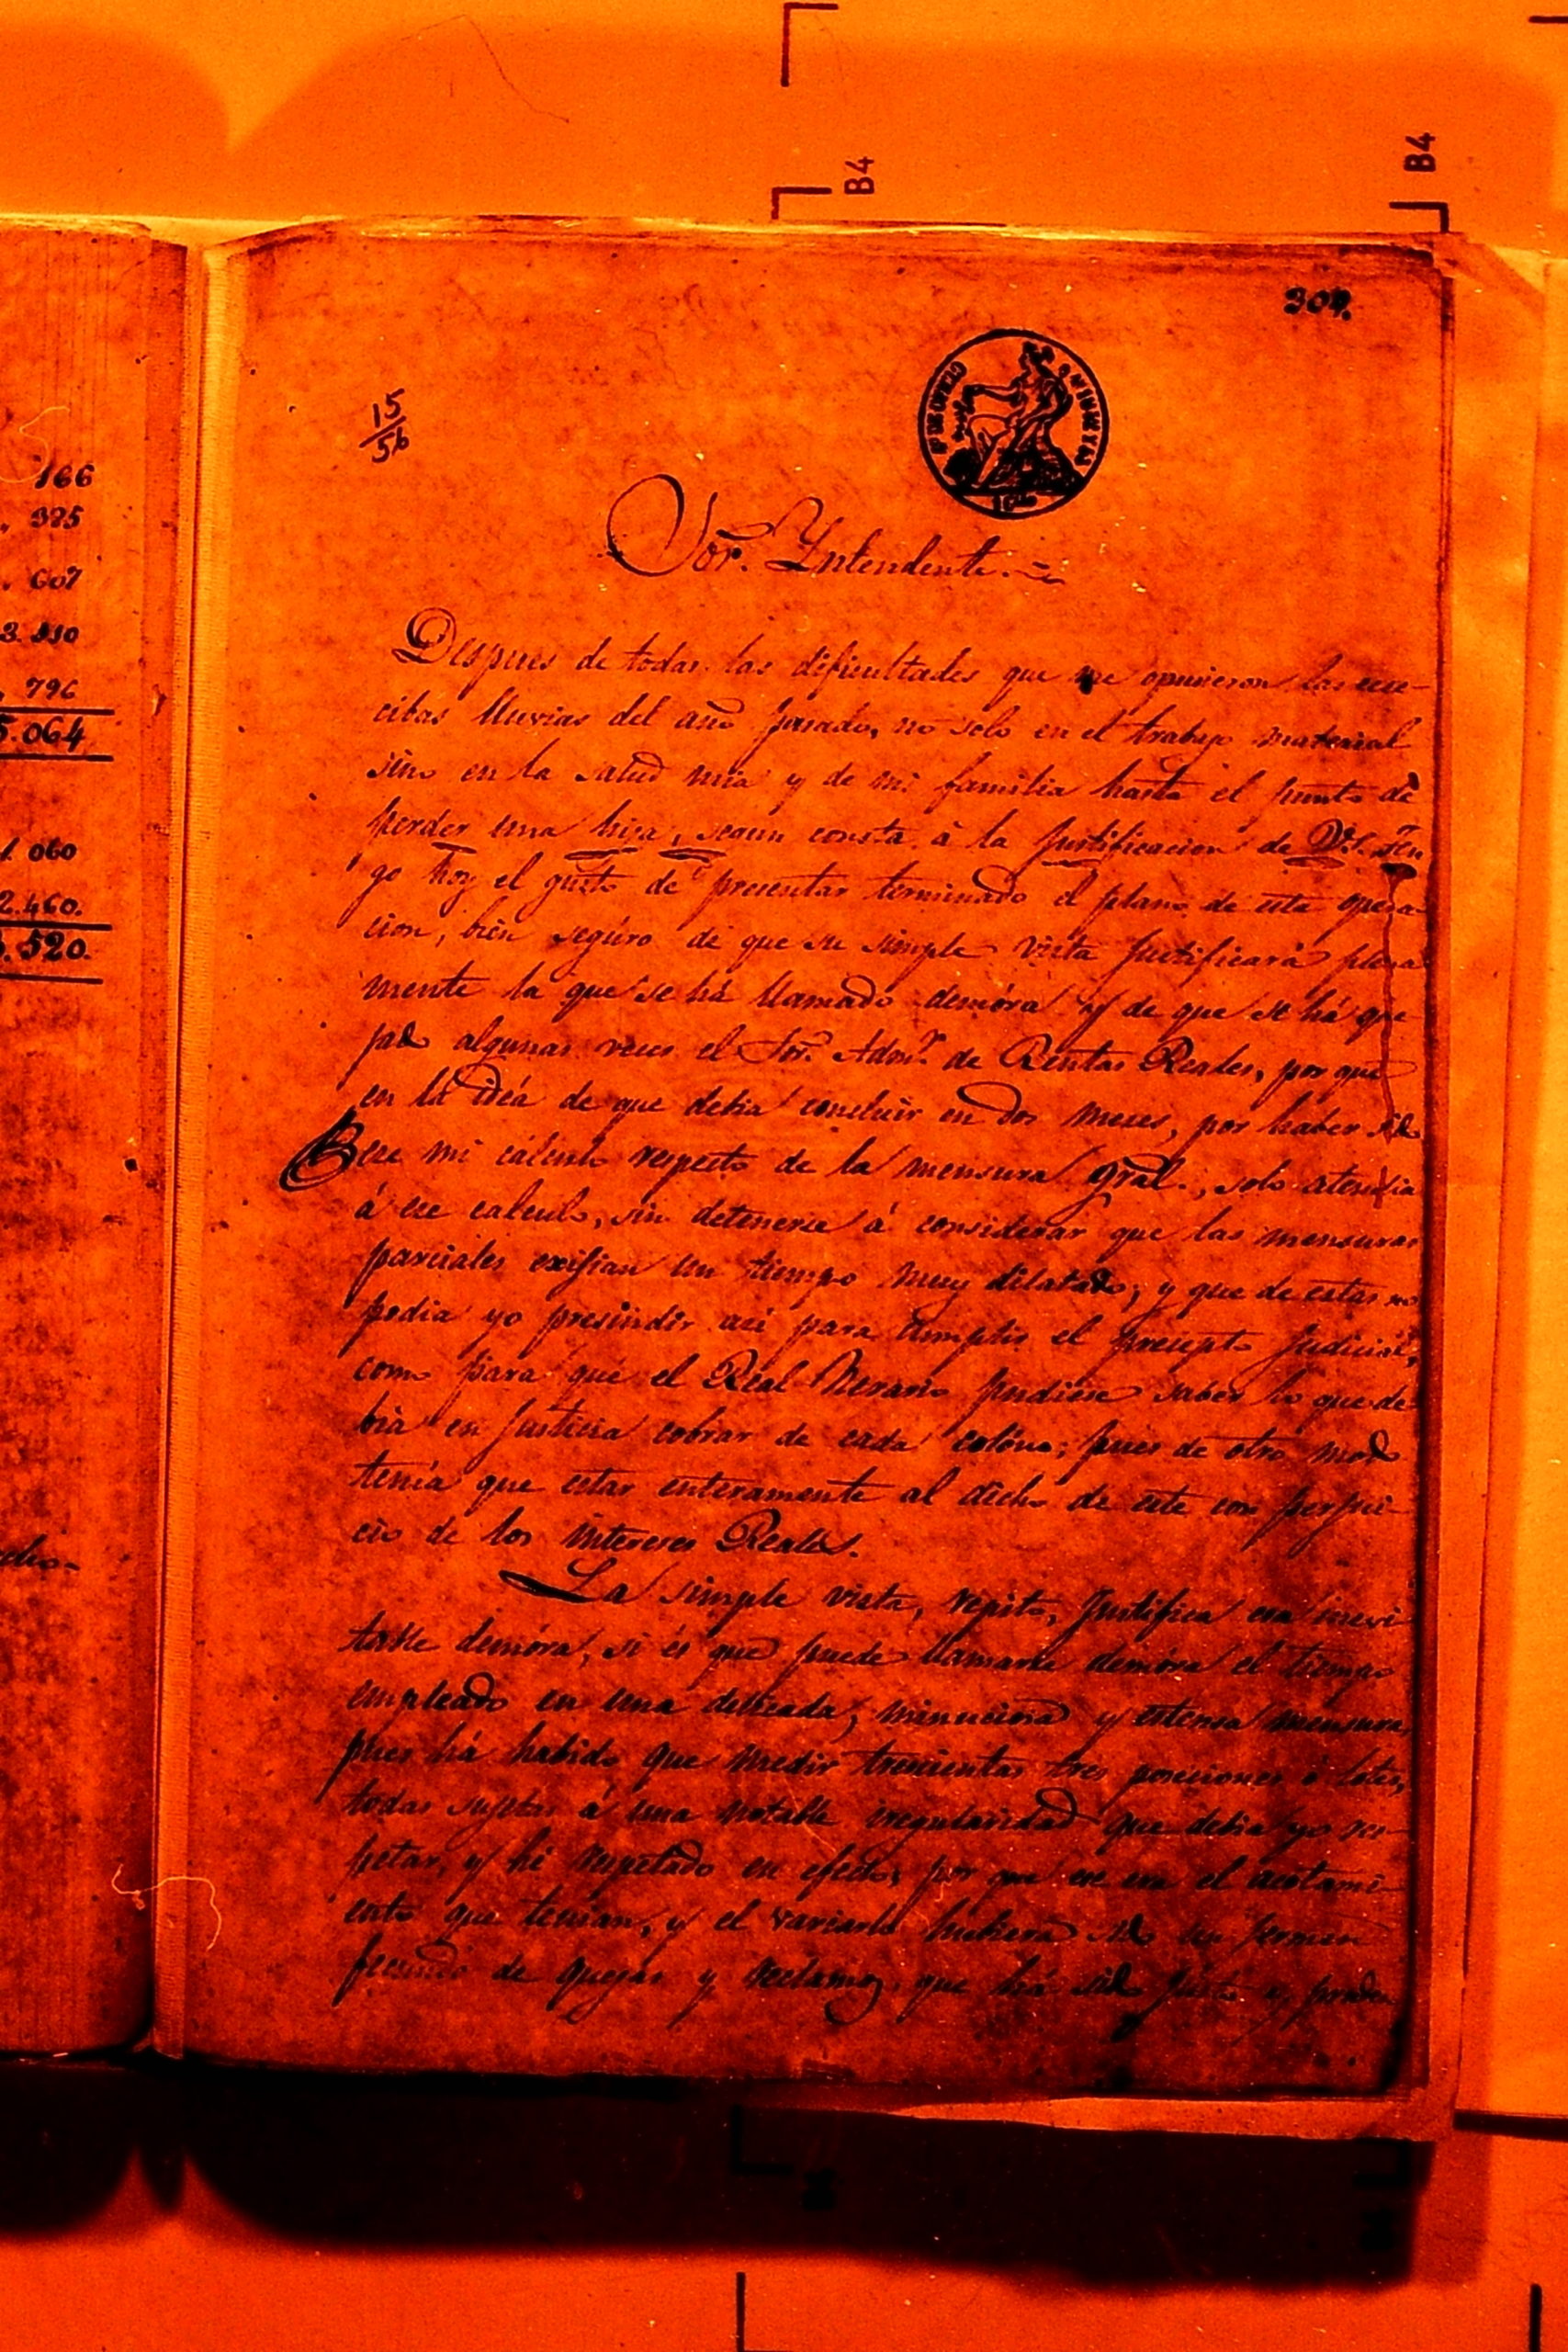 B4
B4
304.
15
56
166
325
607
796
5.064
1.060
2.460.
5.520.
Sor. Yntendente.
Despues de todas las dificultades que me opusieron las ece-
cibas lluvias del año pasado, no solo en el trabajo material
sino en la salud mia y de mi familia hasta el punto de
perder una hija, segun consta à la justificacion de V.S. Ten
go hoy el gusto de presentar terminado el plano de esta opera-
cion, bien segúro de que su simple vista justificará plena
mente la que se há llamado demóra y de que se há que
jado algunas veces el Sor. Admr. de Rentas Reales, por que
en la idéa de que debia concluir en dos meses, por haber sido
ece mi cálculo respecto de la mensura gral., solo atendia
á ece calculo, sin detenerce á considerar que las mensuras
parciales exijian un tiempo muy dilatado; y que de estas no
podia yo presindir asi para cumplir el precepto judicial,
como para que el Real Herario pudiese saber lo que de-
bia en justicia cobrar de cada colóno; pues de otro modo
tenía que estar enteramente al dicho de este con perjui-
cio de los intereses Reales.
La simple vista, repito, justifica esa inevi
table demóra, si és que puede llamarse demóra el tiempo
empleado en una delicada, minuciosa y estensa mensura
pues há habido que medir trescientas tres posesiones ó lotes,
todas sujetas á una notable irregularidad que debia yo res-
petar, y hé respetado en efecto, por que ese era el acotami-
ento que tenian, y el variarlo hubiera sido un jermen
fecundo de quejas y reclamos, que há sido justo y